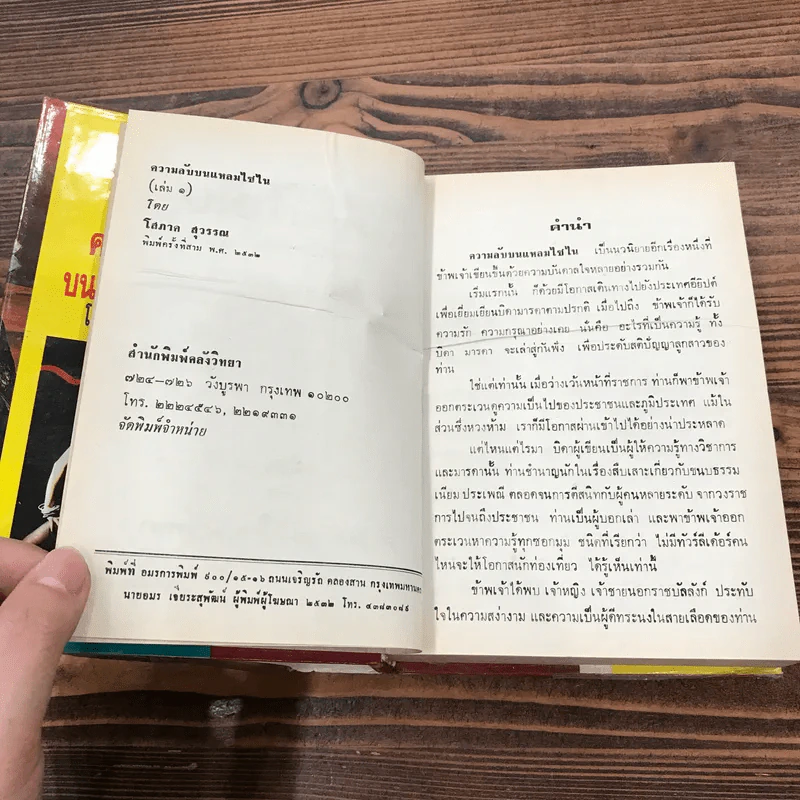 ค
บน
โ
ความลับบนแหลมไซไน
(เล่ม ๑)
โดย
โสภาค สุวรรณ
พิมพ์ครั้งที่สาม พ.ศ. ๒๕๓๒
สำนักพิมพ์คลังวิทยา
๗๒๔-๗๒๖ วังบูรพา กรุงเทพ ๑๐๒๐๐
โทร. ๒๒๒๔๕๔๖, ๒๒๑๙๓๓๑
จัดพิมพ์จำหน่าย
พิมพ์ที่ อมรการพิมพ์ ๙๐๐/๑๕-๑๖ ถนนเจริญรัถ คลองสาน กรุงเทพมหานคร
นายอมร เจี่ยระสุพัฒน์ ผู้พิมพ์ผู้โฆษณา ๒๕๓๒ โทร. ๔๓๗๓๐๘๙
คำนำ
ความลับบนแหลมไซไน เป็นนวนิยายอีกเรื่องหนึ่งที่
ข้าพเจ้าเขียนขึ้นด้วยความบันดาลใจหลายอย่างรวมกัน
เริ่มแรกนั้น ก็ด้วยมีโอกาสเดินทางไปยังประเทศอียิปต์
เพื่อเยี่ยมเยียนบิดามารดาตามปรกติ เมื่อไปถึง ข้าพเจ้าก็ได้รับ
ความรัก ความกรุณาอย่างเคย นั่นคือ อะไรที่เป็นความรู้ ทั้ง
บิดา มารดา จะเล่าสู่กันฟัง เพื่อประดับสติปัญญาลูกสาวของ
ท่าน
ใช่แต่เท่านั้น เมื่อว่างเว้นหน้าที่ราชการ ท่านก็พาข้าพเจ้า
ออกตระเวนดูความเป็นไปของประชาชนและภูมิประเทศ แม้ใน
ส่วนซึ่งหวงห้าม เราก็มีโอกาสผ่านเข้าไปได้อย่างน่าประหลาด
แต่ไหนแต่ไรมา บิดาผู้เขียนเป็นผู้ให้ความรู้ทางวิชาการ
และมารดานั้น ท่านชำนาญนักในเรื่องสืบเสาะเกี่ยวกับขนบธรรม
เนียม ประเพณี ตลอดจนการตีสนิทกับผู้คนหลายระดับ จากวงราช
การไปจนถึงประชาชน ท่านเป็นผู้บอกเล่า และพาข้าพเจ้าออก
ตระเวนหาความรู้ทุกซอกมุม ชนิดที่เรียกว่า ไม่มีทัวร์ลีเด้อร์คน
ไหนจะให้โอกาสนักท่องเที่ยว ได้รู้เห็นเท่านี้
ข้าพเจ้าได้พบ เจ้าหญิง เจ้าชายนอกราชบัลลังก์ ประทับ
ใจในความสง่างาม และความเป็นผู้ดีทระนงในสายเลือดของท่าน